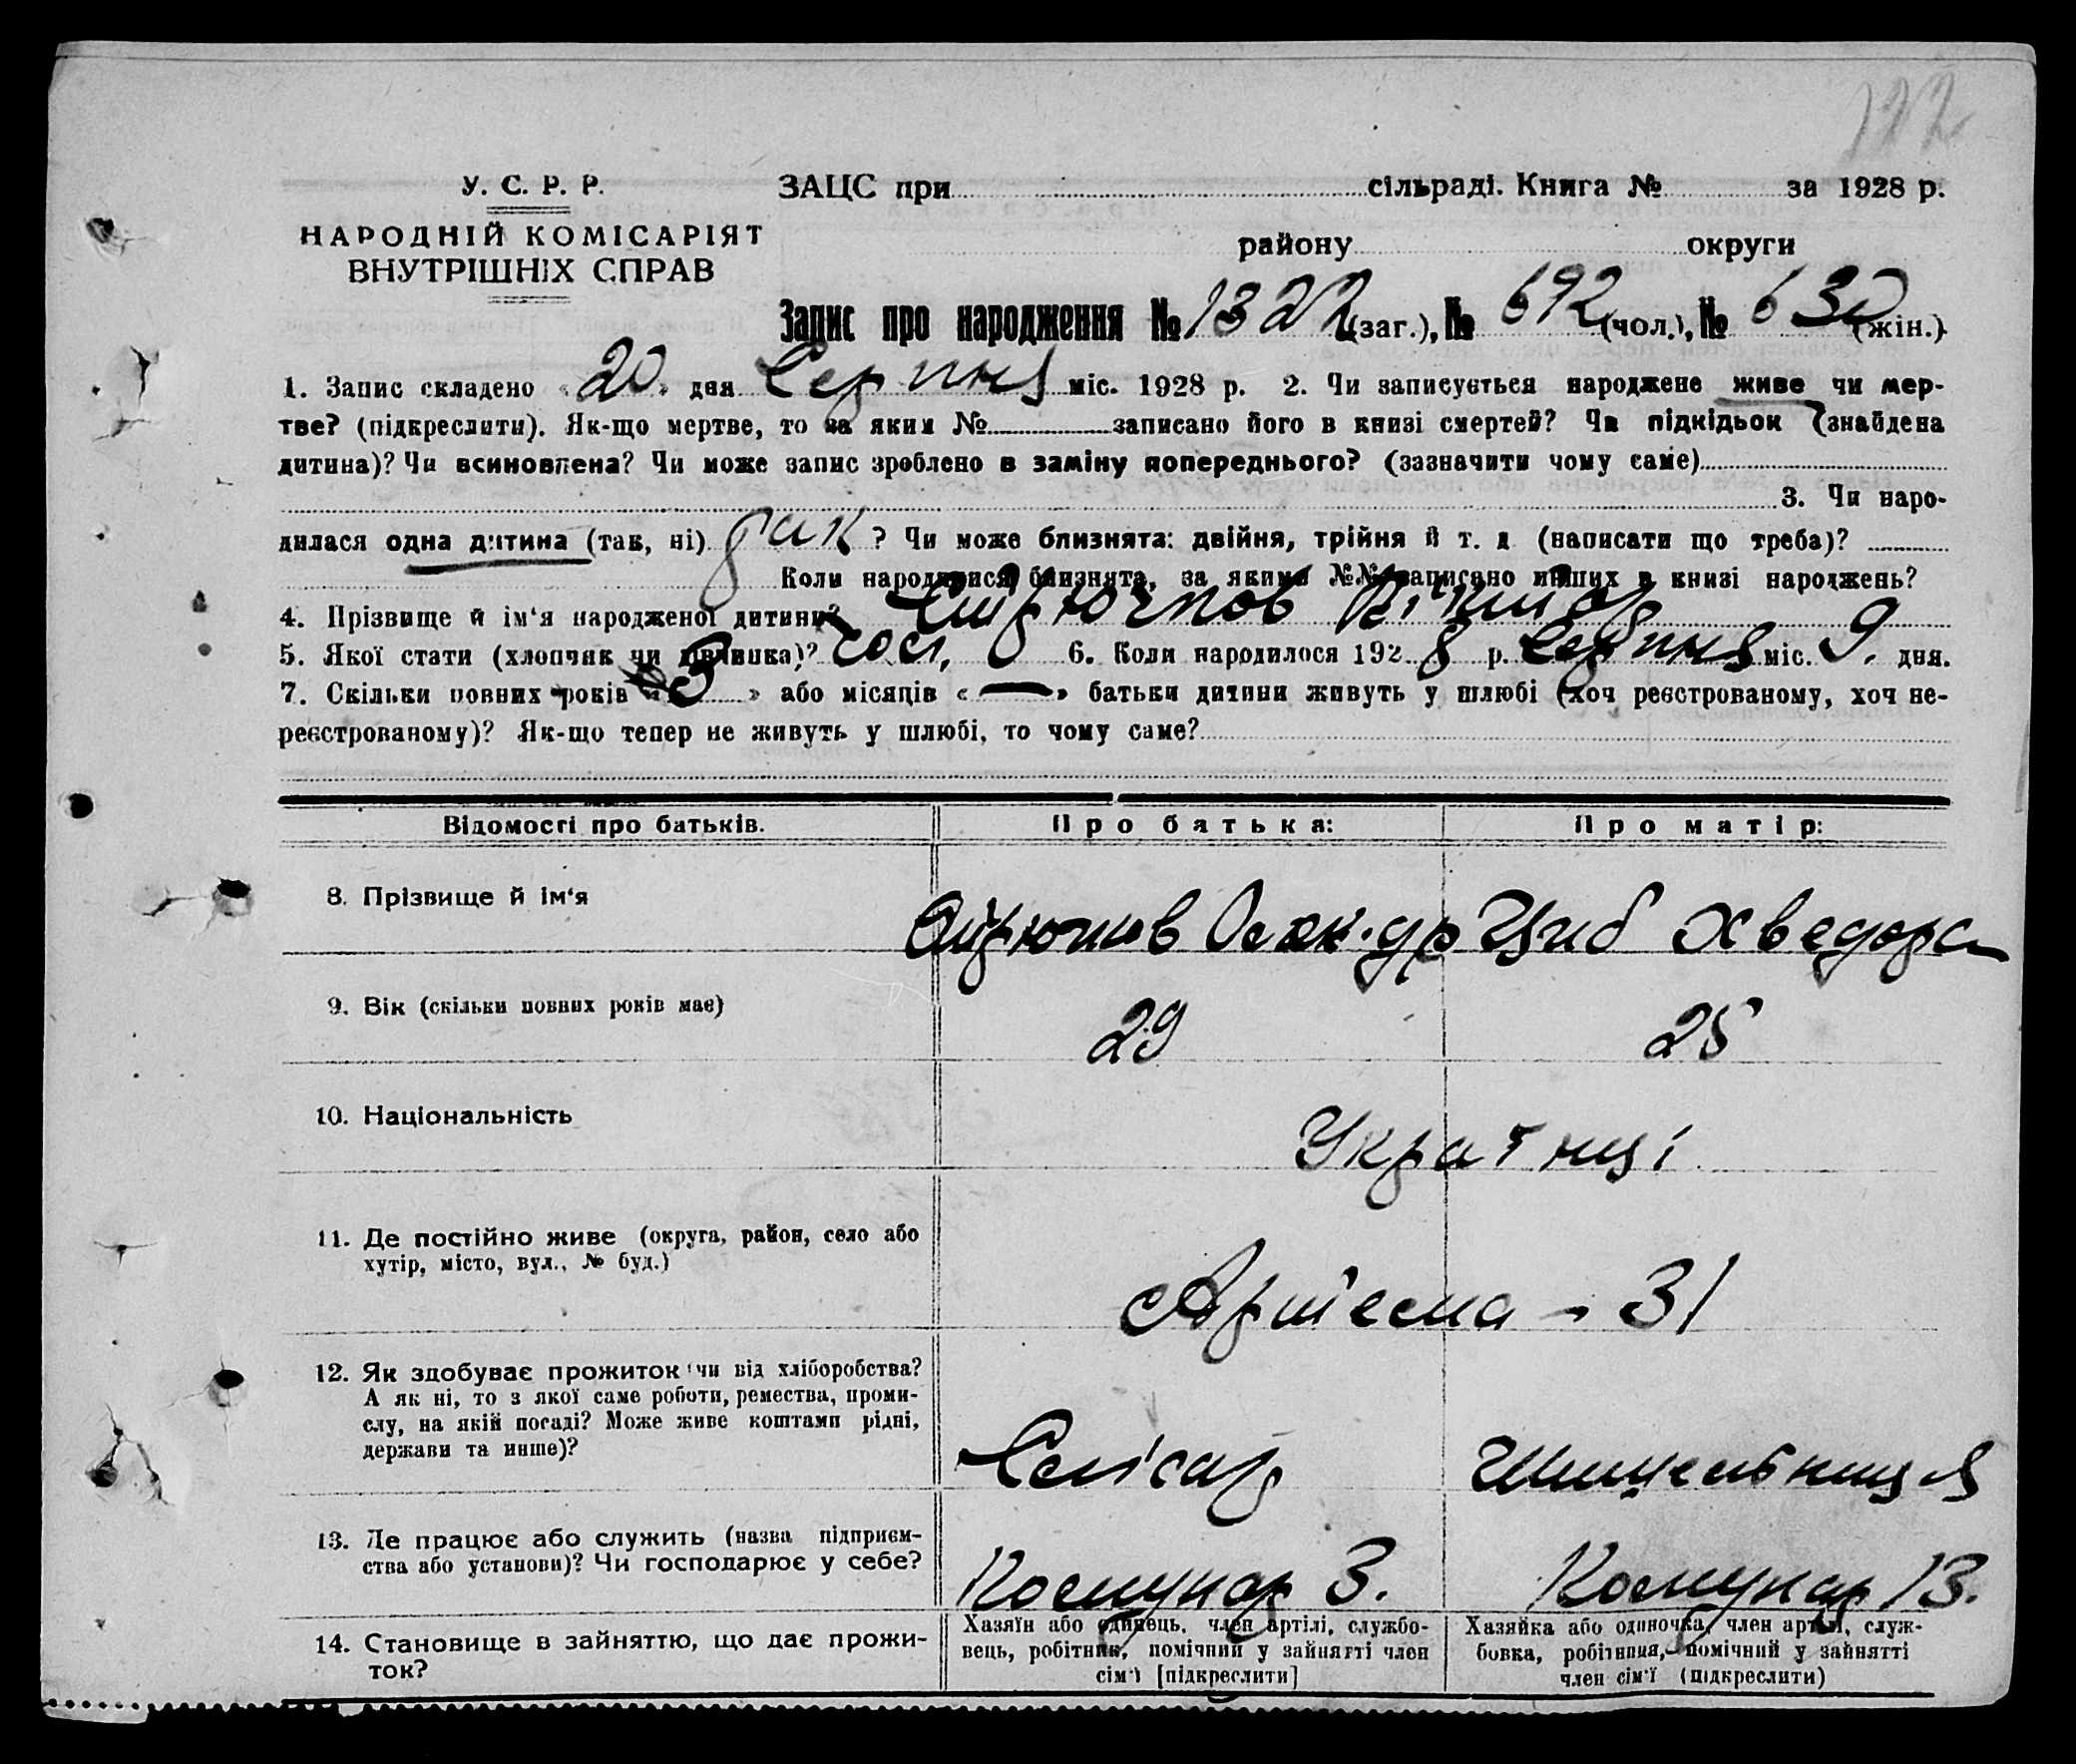 122
У. С. Р. Р.
ЗАЦС при сільраді. Книга № за 1928 р.
НАРОДНІЙ КОМІСАРІЯТ
ВНУТРІШНІХ СПРАВ
району округи
Запис про народження № 1322 (заг.), № 692 (чол.), № 630 (жін.)
1. Запис складено « 20 » дня Серпня міс. 1928 р. 2. Чи записується народжене живе чи мер-
тве? (підкреслити). Як-що мертве, то за яким № записано його в книзі смертей? Чи підкідьок (знайдена
дитина)? Чи всиновлена? Чи може запис зроблено в заміну попереднього? (зазначити чому саме)
3. Чи наро-
дилася одна дитина (так, ні) так ? Чи може близнята: двійня, трійня й т. д (написати що треба)?
Коли народилися близнята, за якими №№ записано инших в книзі народжень?
4. Прізвище й ім‘я народженої дитини?
5. Якої стати (хлопчик чи дівчинка)? 6. Коли народилося 1928 р. Серпня міс. 9. дня.
7. Скільки повних років « 3 » або місяців « — » батьки дитини живуть у шлюбі (хоч реєстрованому, хоч не-
реєстрованому)? Як-що тепер не живуть у шлюбі, то чому саме?
Відомості про батьків. Про батька: Про матір:
8. Прізвище й ім‘я Циб Хведора
9. Вік (скільки повних років має) 29 25
10. Національність Українці
11. Де постійно живе (округа, район, село або
хутір, місто, вул., № буд.) Артема - 31
12. Як здобуває прожиток чи від хліборобства?
А як ні, то з якої саме роботи, ремества, проми-
слу, на якій посаді? Може живе коштами рідні,
держави та инше)? Слюсар
13. Де працює або служить (назва підприєм-
ства або установи)? Чи господарює у себе? Комунар З. Комунар З.
14. Становище в зайняттю, що дає прожи-
ток?
Хазяїн або одинець, член артілі, службо-
вець, робітник, помічний у зайнятті член
сім‘ї [підкреслити]
Хазяйка або одиночка, член артілі, служ-
бовка, робітниця, помічний у зайнятті
член сім‘ї (підкреслити)